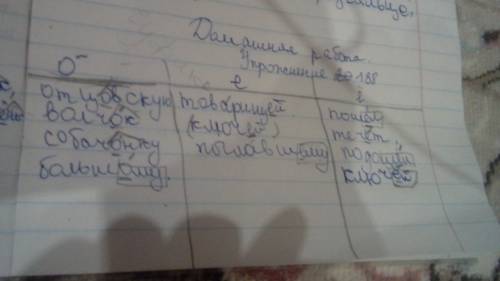 Домашняя работа.
Упражнение 188
О е ё
отцовскую товарищей пошёл
волчок (ключей) течёт
собачонку пылавшему подошёл
большому ключей